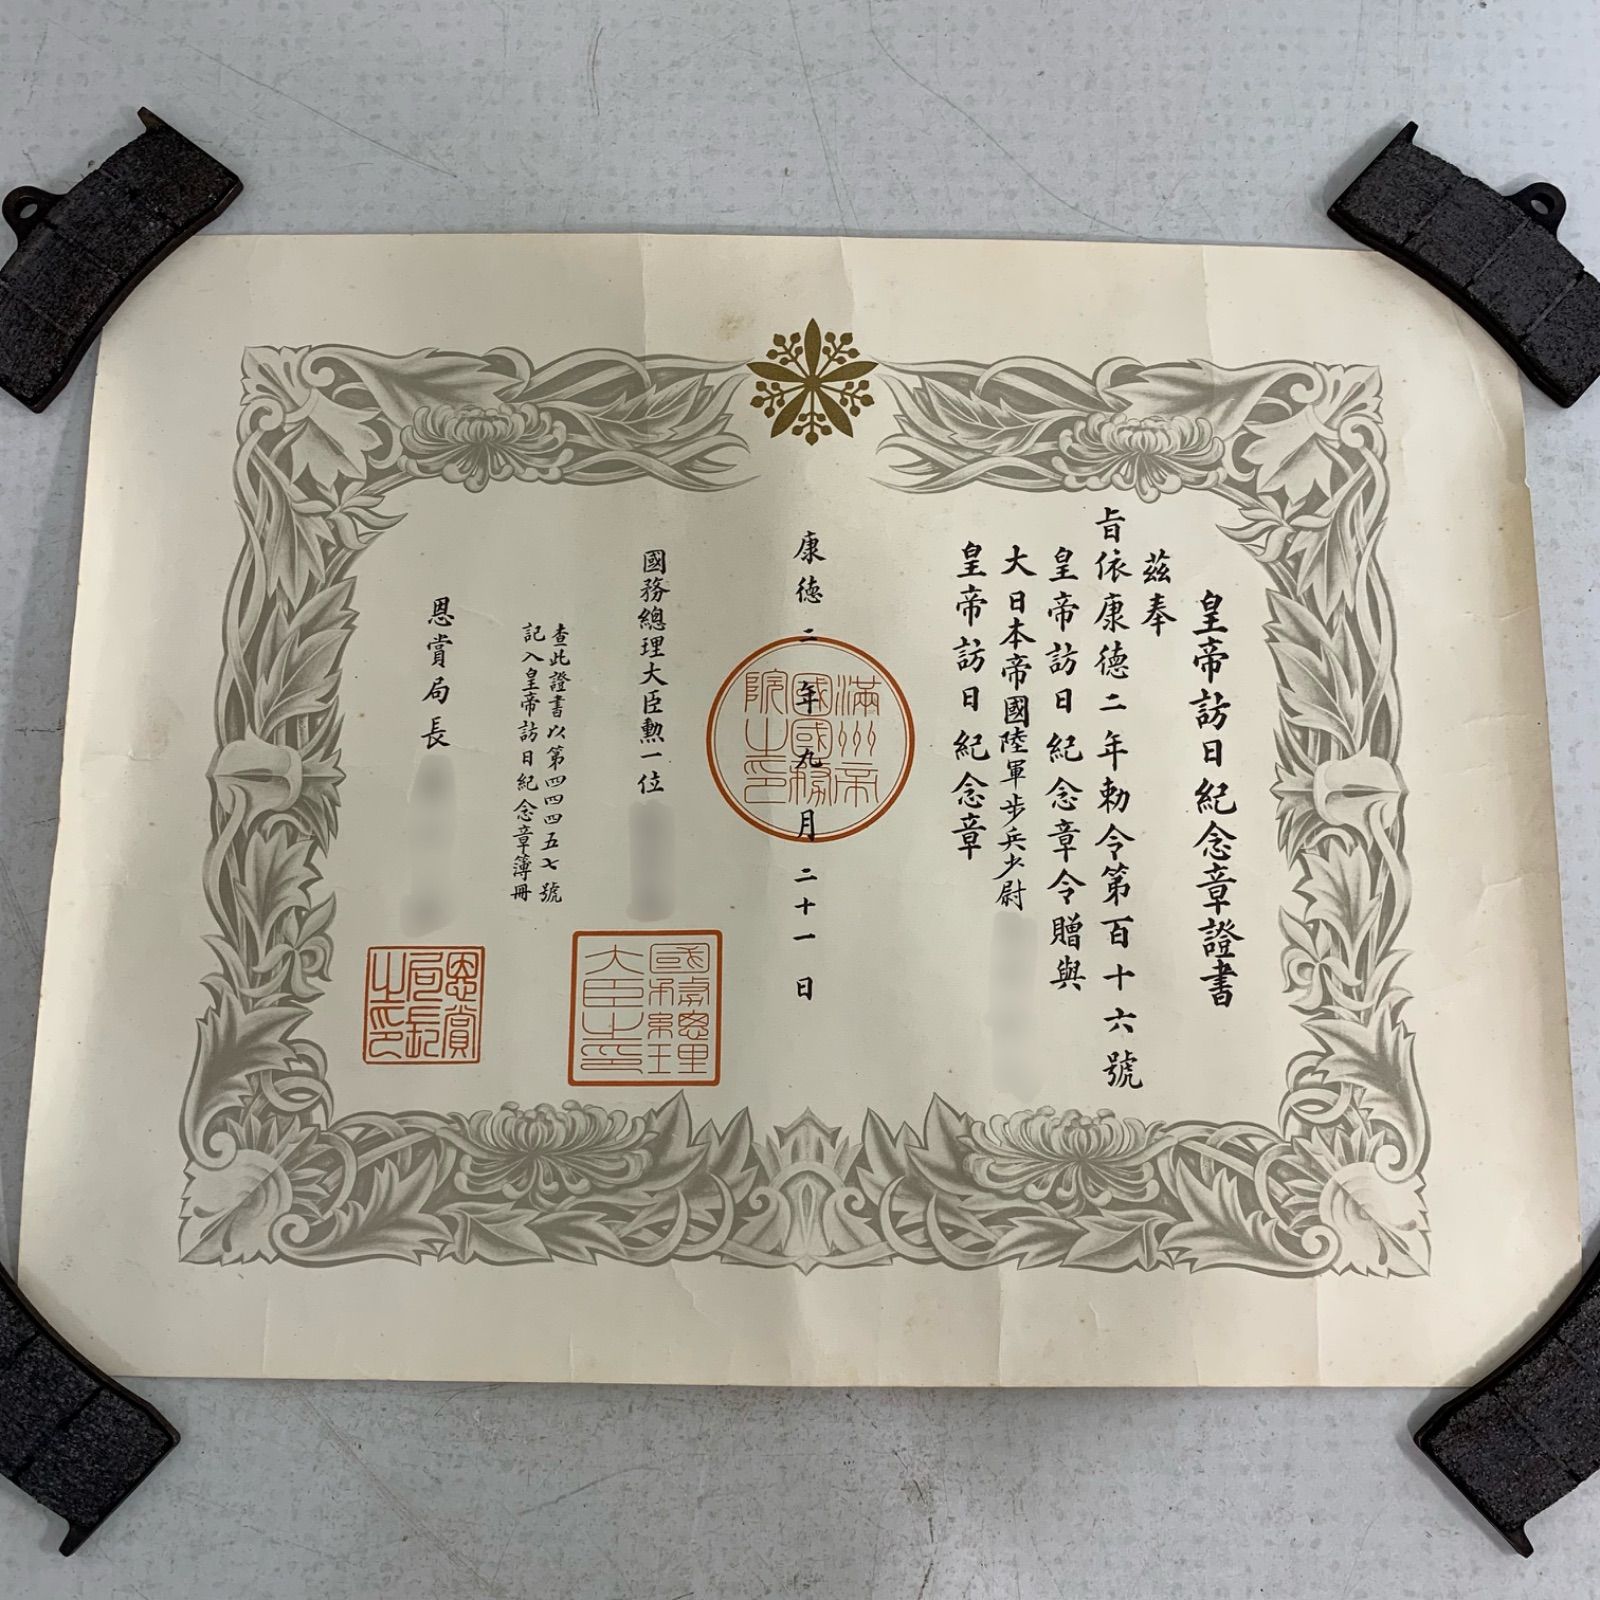 皇帝訪日紀念章證書
茲奉
旨依康德二年勅令第百十六號
皇帝訪日紀念章令贈與
大日本帝國陸軍步兵少尉
皇帝訪日紀念章
康德二年九月二十一日
滿州帝國國務院之印
國務總理大臣勲一位
國務總理大臣之印
查此證書以第四四四五七號
記入皇帝訪日紀念章簿冊
恩賞局長
恩賞局長之印